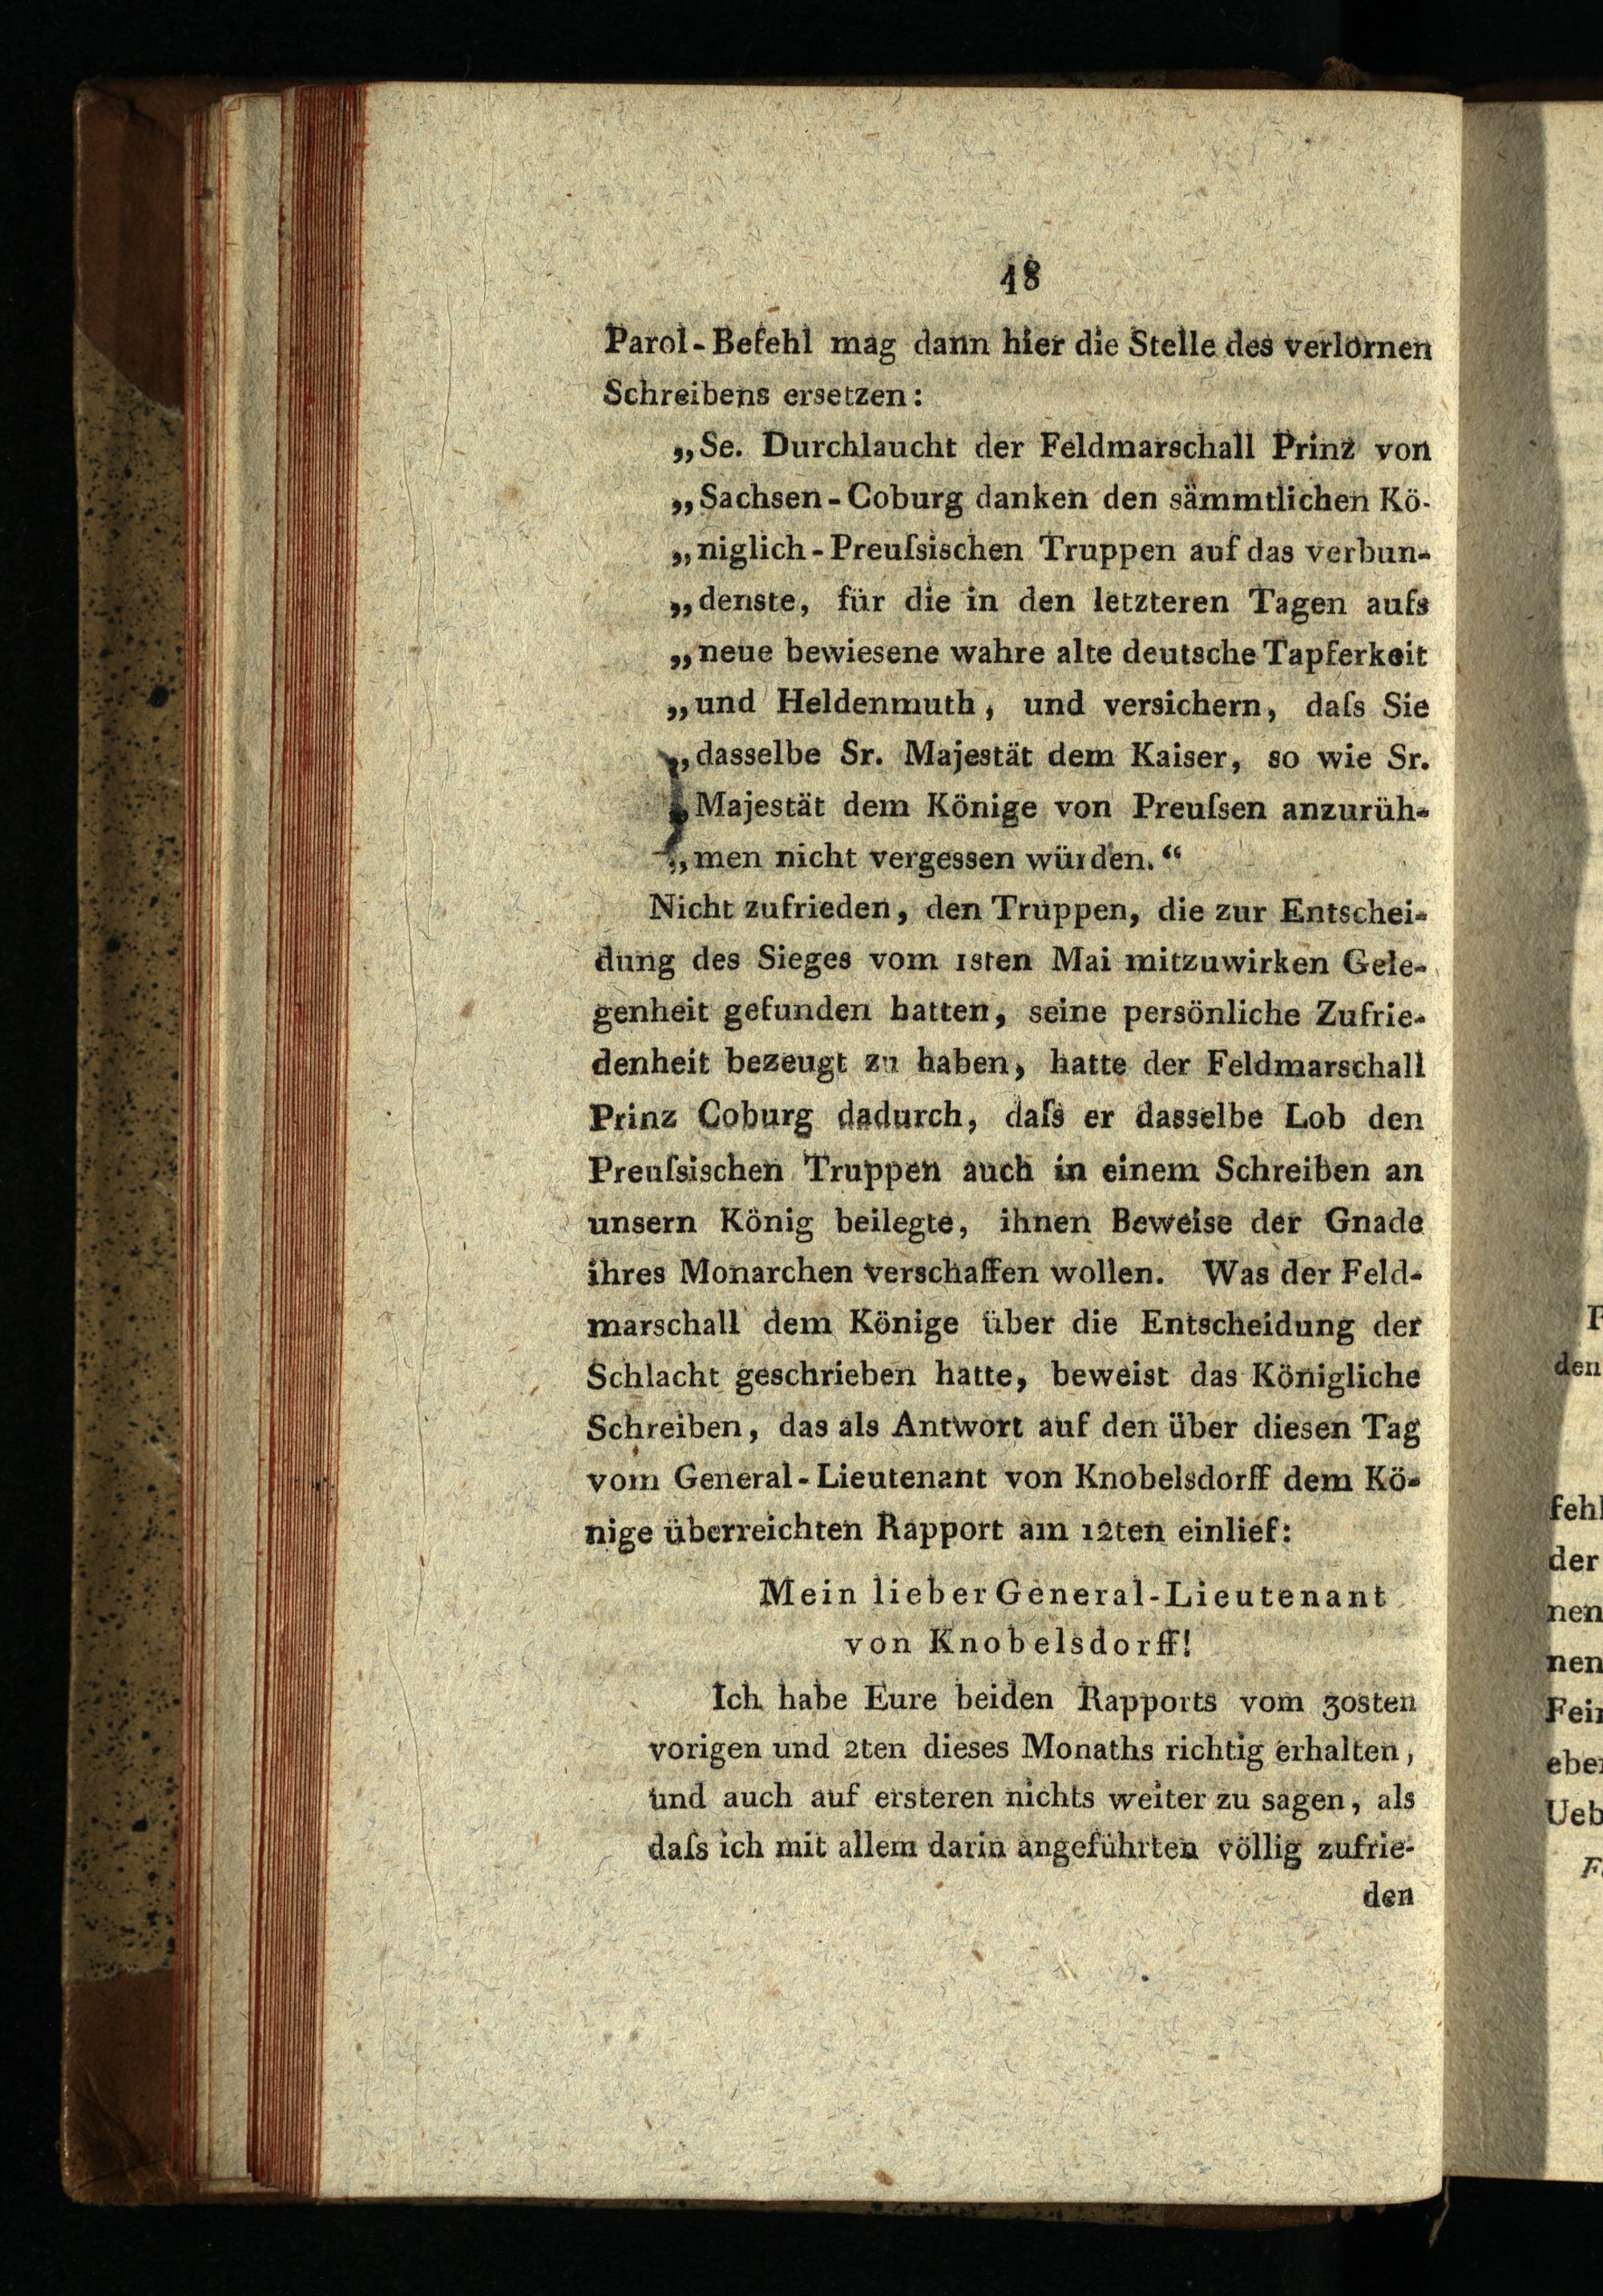 18
Parol-Befehl mag dann hier die Stelle des verlornen
Schreibens ersetzen:
„Se. Durchlaucht der Feldmarschall Prinz von
„Sachsen-Coburg danken den sämmtlichen Kö-
„niglich-Preuſsischen Truppen auf das verbun-
„denste, für die in den letzteren Tagen aufs
„neue bewiesene wahre alte deutsche Tapferkeit
„und Heldenmuth, und versichern, daſs Sie
„dasselbe Sr. Majestät dem Kaiser, so wie Sr.
„Majestät dem Könige von Preuſsen anzurüh-
„men nicht vergessen würden.“
Nicht zufrieden, den Truppen, die zur Entschei-
dung des Sieges vom 1sten Mai mitzuwirken Gele-
genheit gefunden hatten, seine persönliche Zufrie-
denheit bezeugt zu haben, hatte der Feldmarschall
Prinz Coburg dadurch, daſs er dasselbe Lob den
Preuſsischen Truppen auch in einem Schreiben an
unsern König beilegte, ihnen Beweise der Gnade
ihres Monarchen verschaffen wollen. Was der Feld-
marschall dem Könige über die Entscheidung der
Schlacht geschrieben hatte, beweist das Königliche
Schreiben, das als Antwort auf den über diesen Tag
vom General-Lieutenant von Knobelsdorff dem Kö-
nige überreichten Rapport am 12ten einlief:
Mein lieber General-Lieutenant
von Knobelsdorff!
Ich habe Eure beiden Rapports vom 30sten
vorigen und 2ten dieses Monaths richtig erhalten,
und auch auf ersteren nichts weiter zu sagen, als
daſs ich mit allem darin angeführten völlig zufrie-
den
den
fehl
der
nen
nen
Ueb